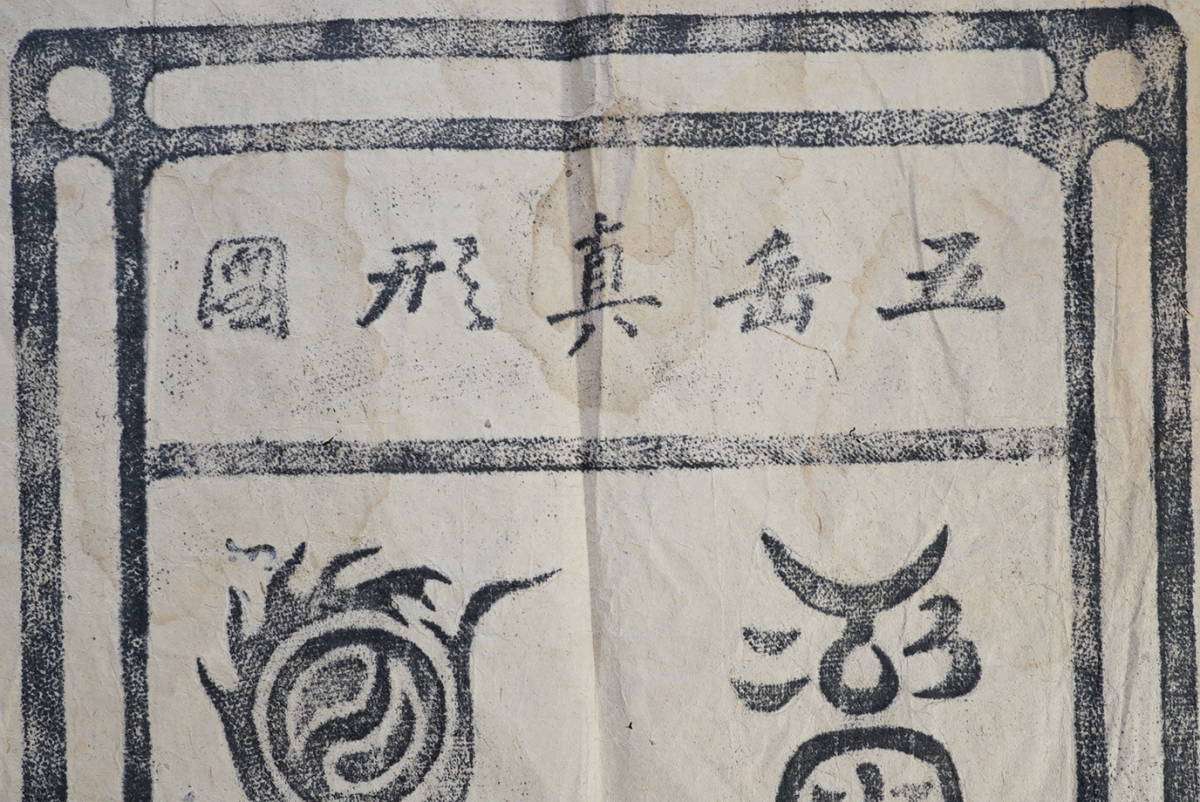 五岳真形圖